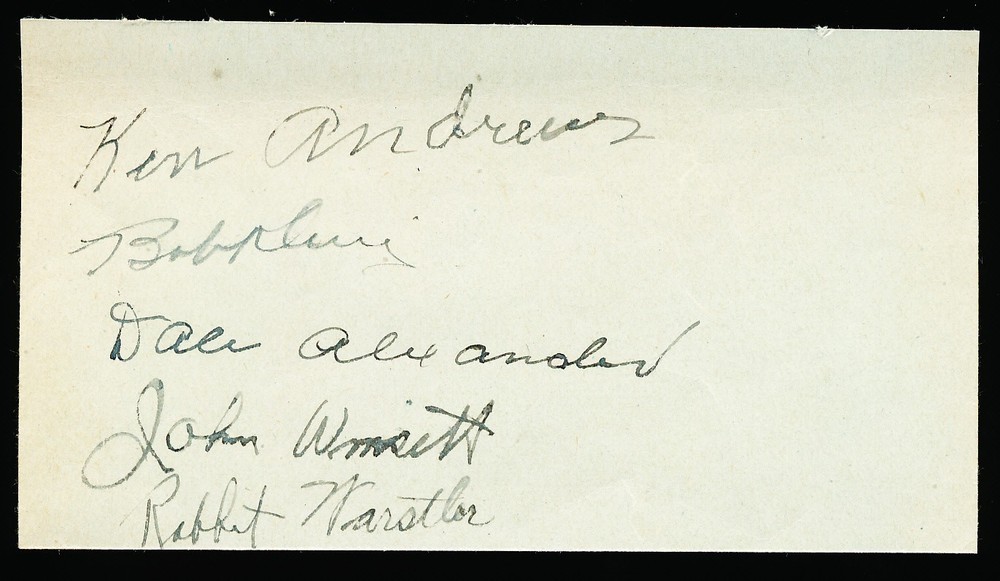 Ken Andrews
Bob Kline
Dale Alexander
John Winsett
Rabbit Warstler